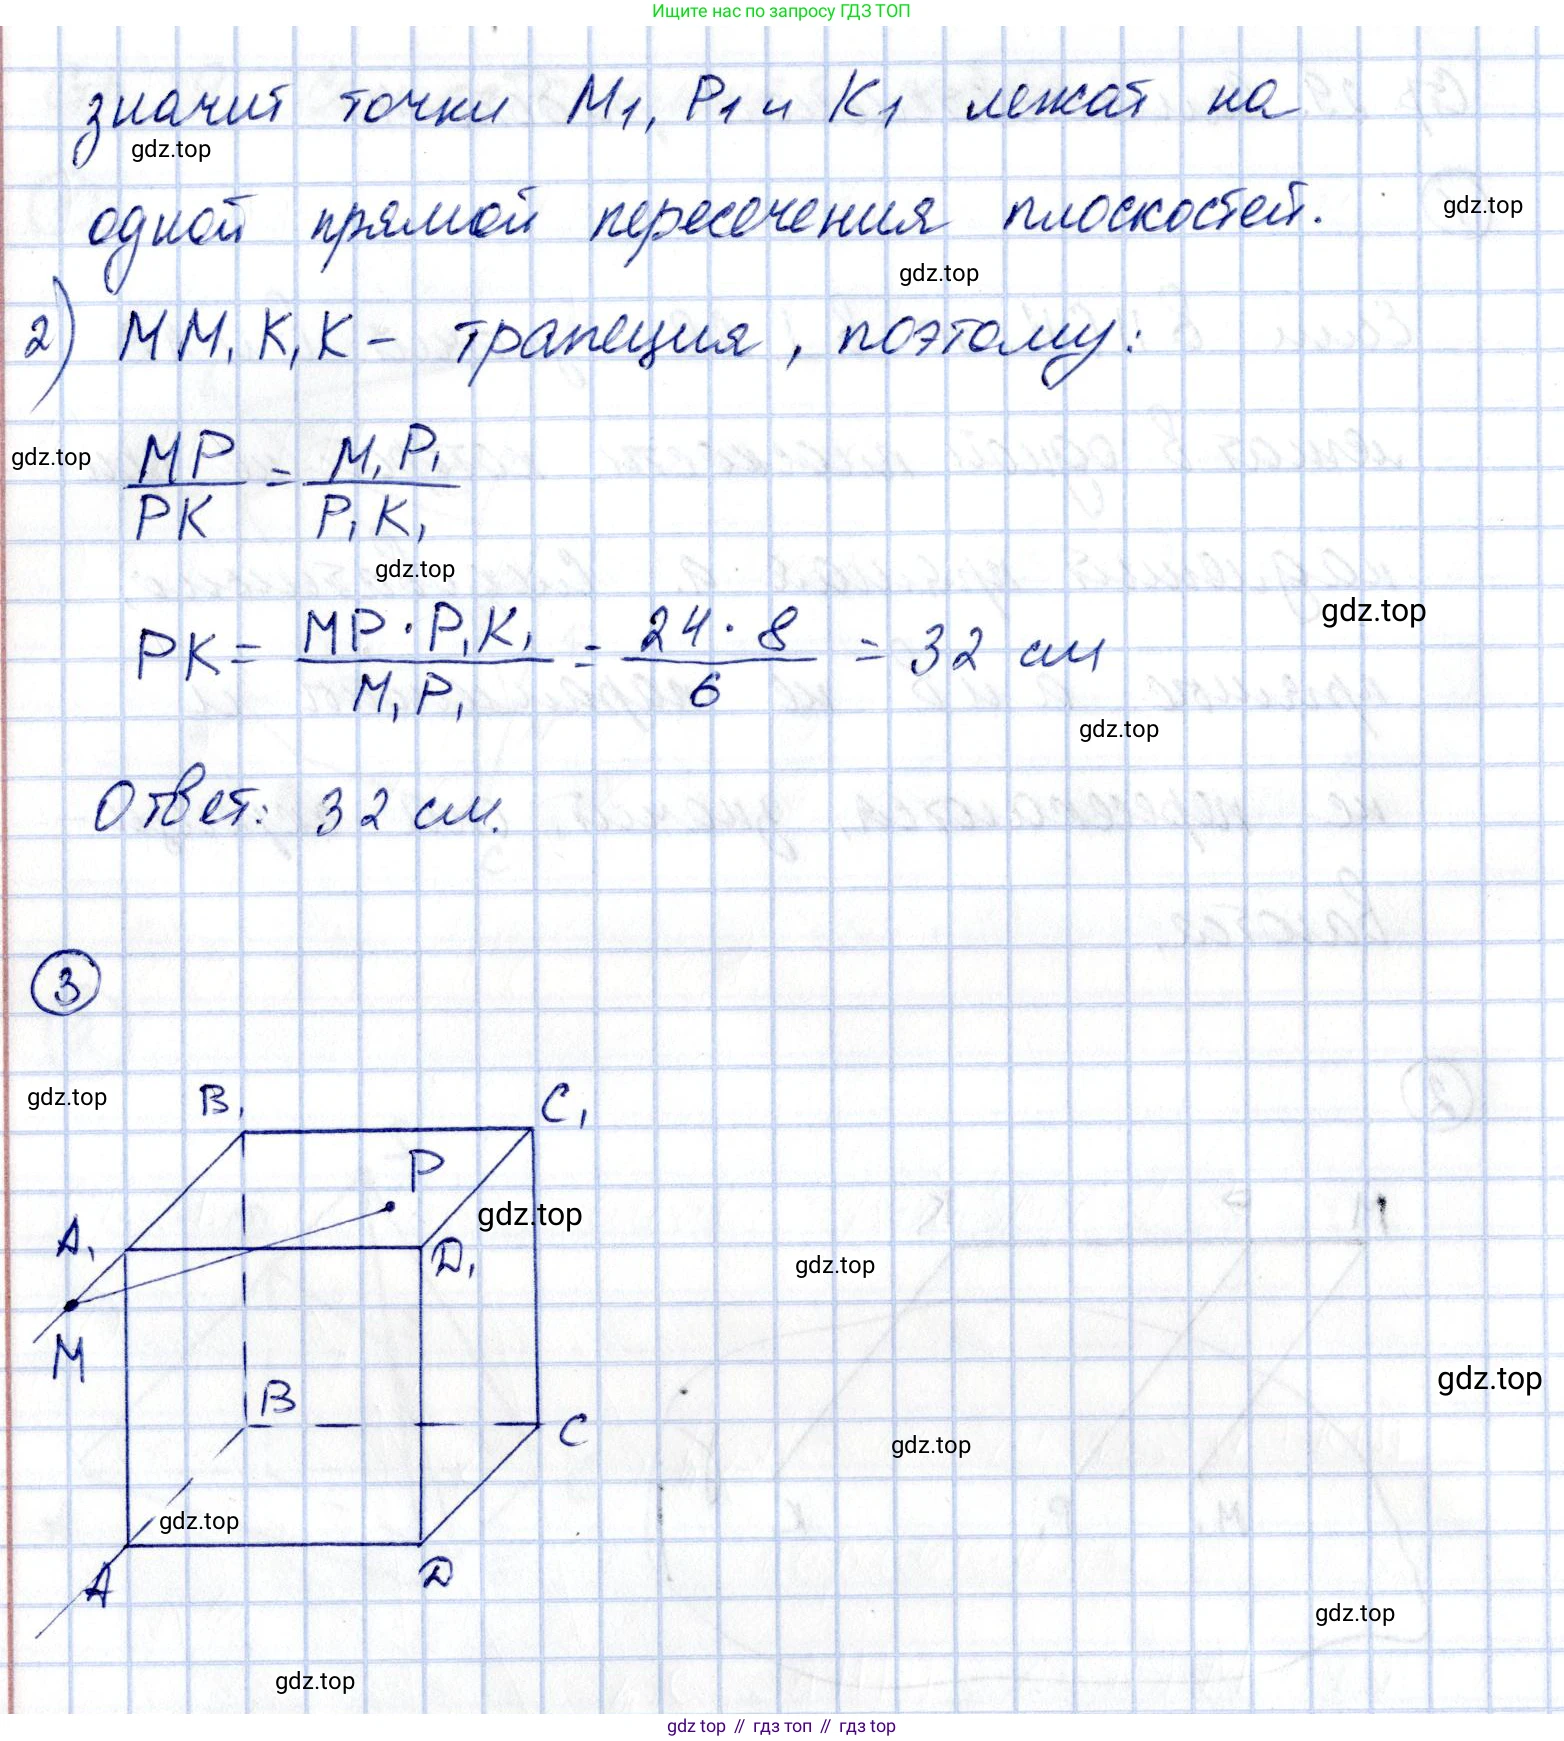 Ищите нас по запросу ГДЗ ТОП
значит точки M1, P1 и K1 лежат на
gdz.top
одной прямой пересечения плоскостей.
gdz.top
gdz.top
2) MM1K1K – трапеция, поэтому:
gdz.top
MP/PK = M1P1/P1K1
gdz.top
gdz.top
PK = MP·P1K1/M1P1 = 24·8/6 = 32 см
gdz.top
Ответ: 32 см.
3
gdz.top
B1 C1
P
gdz.top
A1 D1
gdz.top
M
gdz.top
B
C
gdz.top
gdz.top
A D
gdz.top
gdz.top
gdz top // гдз топ // гдз top